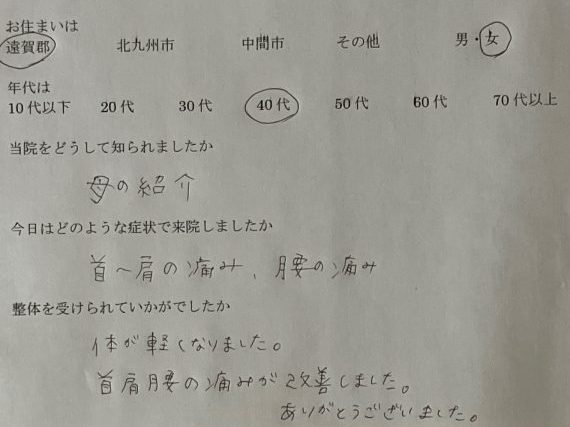 お住まいは
遠賀郡 北九州市 中間市 その他 男・女
年代は
10代以下 20代 30代 40代 50代 60代 70代以上
当院をどうして知られましたか
母の紹介
今日はどのような症状で来院しましたか
首〜肩の痛み、腰の痛み
整体を受けられていかがでしたか
体が軽くなりました。
首肩腰の痛みが改善しました。
ありがとうございました。